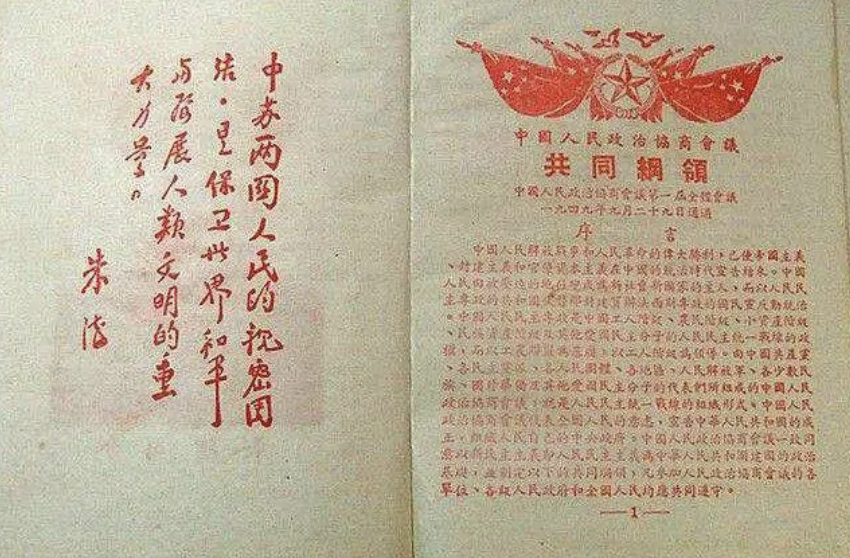 中苏两国人民的親密团
结·是保卫世界和平
与發展人類文明的重
大力量。
朱德
中國人民政治協商會議
共同綱領
中國人民政治協商會議第一屆全體會議
一九四九年九月二十九日通過
序 言
中國人民解放戰爭和人民革命的偉大勝利,已使帝國主義
、封建主義和官僚資本主義在中國的統治時代宣告結束。中國
人民由被壓迫的地位變成爲新社會新國家的主人、而以人民民
主專政的共和國代替那封建買辦法西斯專政的國民黨反動統治
。中國人民民主專政是中國工人階級、農民階級、小資產階級
、民族資產階級及其他愛國民主分子的人民民主統一戰線的政
權、而以工農聯盟爲基礎,以工人階級爲領導。由中國共產黨
、各民主黨派、各人民團體、各地區、人民解放軍、各少數民
族、國外華僑及其他愛國民主分子的代表們所組成的中國人民
政治協商會議,就是人民民主統一戰線的組織形式。中國人民
政治協商會議代表全國人民的意志,宣告中華人民共和國的成
立,組織人民自己的中央政府。中國人民政治協商會議一致同
意以新民主主義即人民民主主義爲中華人民共和國建國的政治
基礎,並制定以下的共同綱領,凡參加人民政治協商會議的各
單位、各級人民政府和全國人民均應共同遵守。
—1—